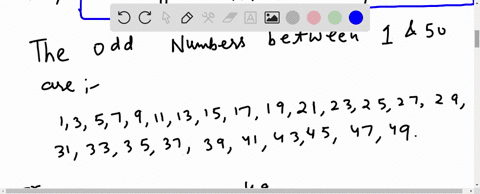 The odd Numbers between 1 & 50
are ;-
1, 3, 5, 7, 9, 11, 13, 15, 17, 19, 21, 23, 25, 27, 29,
31, 33, 35, 37, 39, 41, 43, 45, 47, 49.